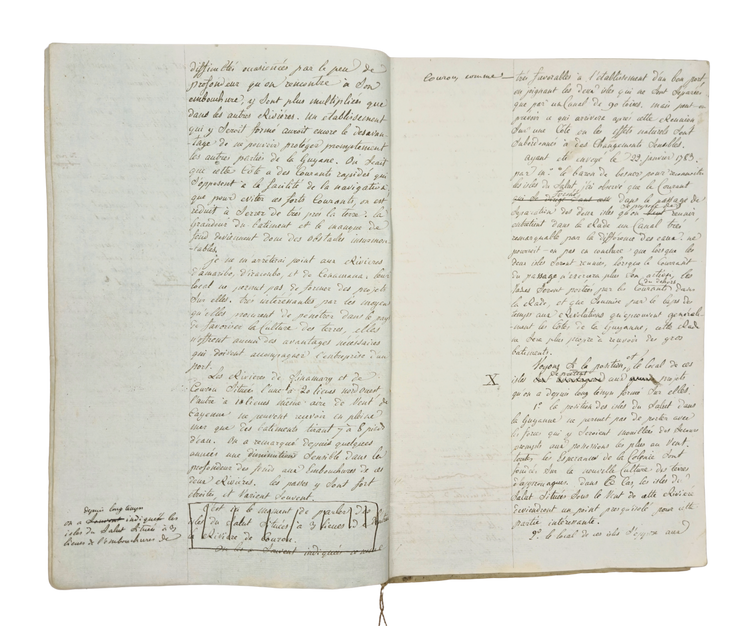 difficultés occasionées par le peu de
profondeur qu'on rencontre à son
embouchure, y sont plus multipliées que
dans les autres Rivières. un établissement
qui y seroit formé auroit encore le desavan
tage de ne pouvoir proteger promptement
les autres parties de la Guyane. On Scait
que cette Côte a des Courants rapides qui
s'opposent à la facilité de la navigation
que pour eviter ces forts Courants, on est
réduit à Serrer de très près la terre: la
Grandeur du bâtiment et le manque de
fond deviennent deux des obstacles insurmon
tables.
je ne m'arrêterai point aux Rivières
et de leur
local ne permet pas de former des projets
Sur elles. très intéressantes par les moyens
qu'elles procurent de pénétrer dans le pays
de favoriser la Culture des terres, elles
n'offrent aucun des avantages necessaires
qui doivent accompagner l'entreprise d'un
port.
Les Rivières de Sinamary et de
Courou Situées l'une à 20 lieues
l'autre à 10 lieues même aire de Vent de
Cayenne ne peuvent recevoir en pleine
mer que des bâtiments tirant 7 à 8 pieds
d'eau. On a remarqué depuis quelques
années une diminution Sensible dans la
profondeur des fond aux Embouchures de ces
deux Rivières. les passes y Sont fort
étroites, et Varient Souvent.
C'est ici le moment de parler des
isles du Salut Situées à 3 lieues
la Rivière de Courou.
On les a Souvent indiquées comme
depuis long temps
on a Souvent indiqué les
isles du Salut Situées à 3
lieues de l'embouchure de
Courou comme
très favorables à l'établissement d'un bon port,
en joignant les deux isles qui ne Sont Séparées
que par un Canal de 90 toises. mais peut-on
prévoir ce qui arrivera après cette Réunion
Sur une Côte où les effets naturels Sont
Subordonnés à des Changements Sensibles.
Ayant été envoyé le 22 janvier 1783.
par M. le baron de Besner pour reconnoître
les isles du Salut, j'ai observé que le Courant
dans le passage de
Séparation des deux isles
dans la Rade un Canal très
remarquable par la différence des eaux. ne
pourroit-on pas en conclure que lorsque les
deux isles Seront réunies, lorsque le Courant
du passage n'exercera plus Son action, les
Vases Seront portées par les Courants dans
la Rade, et que Soumise par le laps de
temps aux Révolutions qu'éprouvent generale
ment les Côtes de la Guyanne, cette Rade
ne Sera plus propre à recevoir des gros
bâtiments.
X
Voyons Si la position et le local de ces
isles
qu'on a depuis long temps formé Sur elles.
1° la position des isles du Salut dans
la Guyanne ne permet pas de porter avec
les forces qui y Seroient mouillées des Secours
prompts aux possessions les plus au Vent.
toutes les Espérances de la Colonie Sont
fondées Sur la nouvelle Culture des terres
d'approuague. dans Ce Cas les isles du
Salut Situées Sous le Vent de cette Rivière
deviendront un point peu propre pour cette
partie intéressante.
2° le local de ces isles